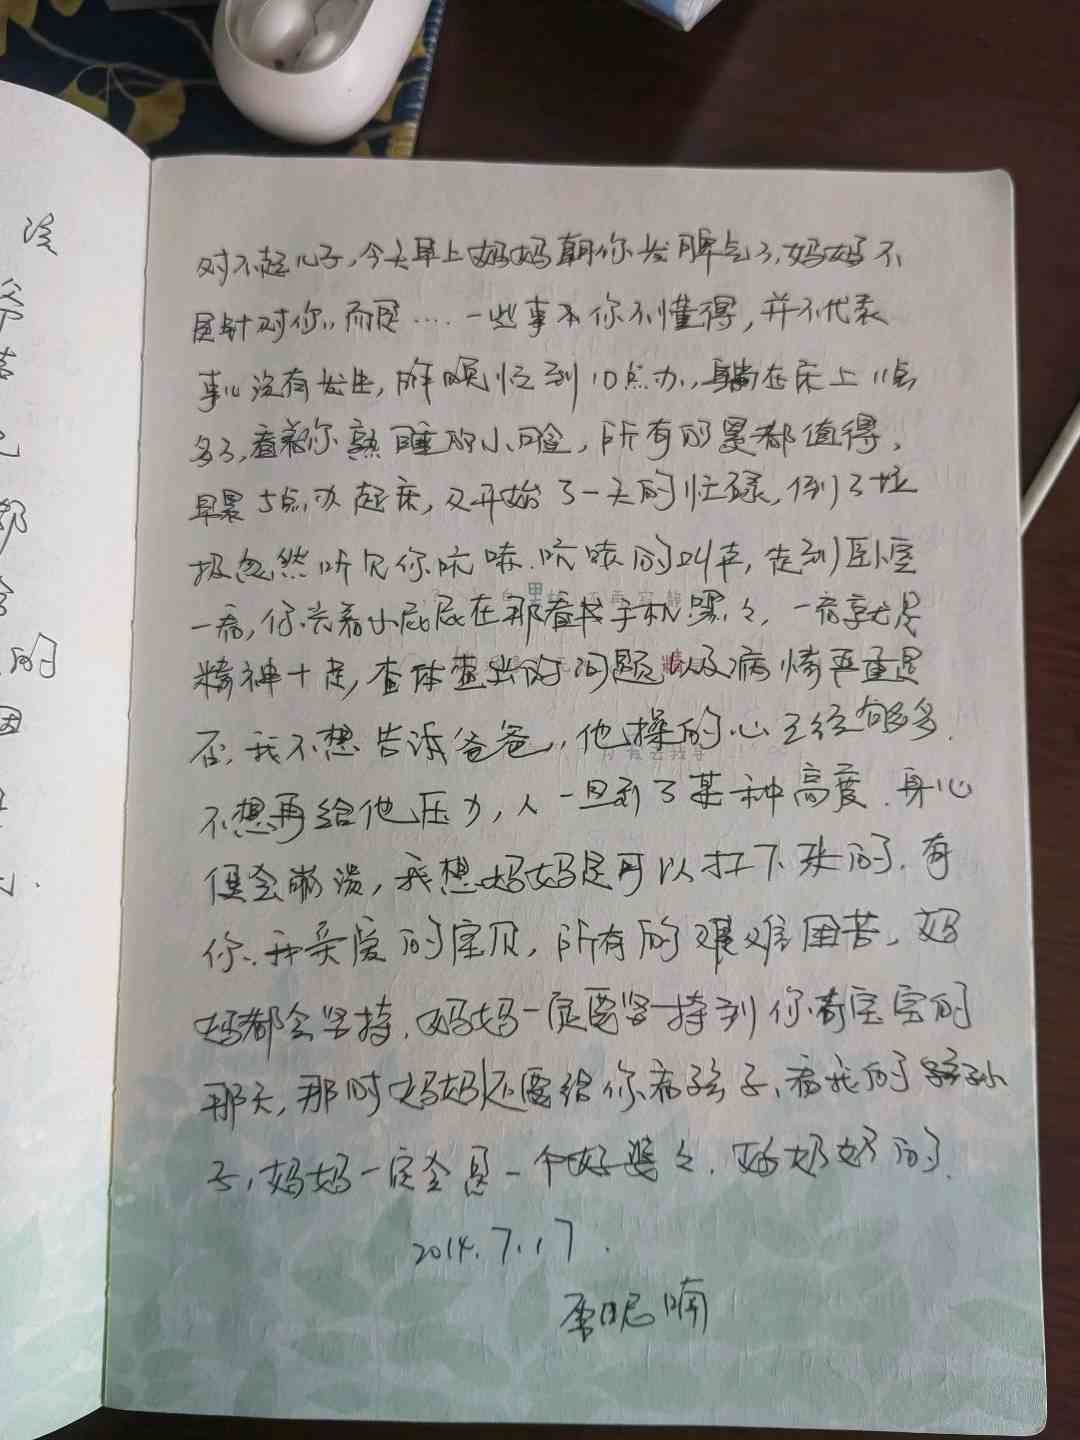 没
爷
都
的
因
对不起儿子,今天早上妈妈朝你发脾气了,妈妈不
是针对你,而是……一些事不你不懂得,并不代表
事儿没有发生,昨晚忙到10点办,躺在床上11点
多了,看着你熟睡的小脸,所有的累都值得,
早晨5点办起床,又开始了一天的忙碌,倒了垃
圾忽然听见你吭哧、吭哧的叫声,走到卧室
一看,你光着小屁屁在那看书手机
精神十足,查体查出的问题以及病情严重是
否,我不想告诉爸爸,他操的心已经够多多.
不想再给他压力,人一旦到了某种高度.身心
便会崩溃,我想妈妈是可以扛下来的.有
你、我亲爱的宝贝,所有的艰难困苦,妈
妈都会坚持.妈妈一定要坚持到你有宝宝的
那天,那时妈妈还要给你看孩子、看我的孙
子,妈妈一定会是一个好婆婆.好奶奶的.
2014.7.17.